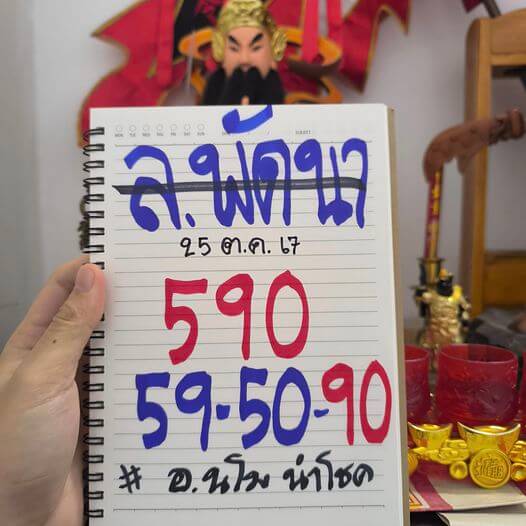 ล.พัฒนา
25 ต.ค. 67
590
59-50-90
# อ.นโม นำโชค